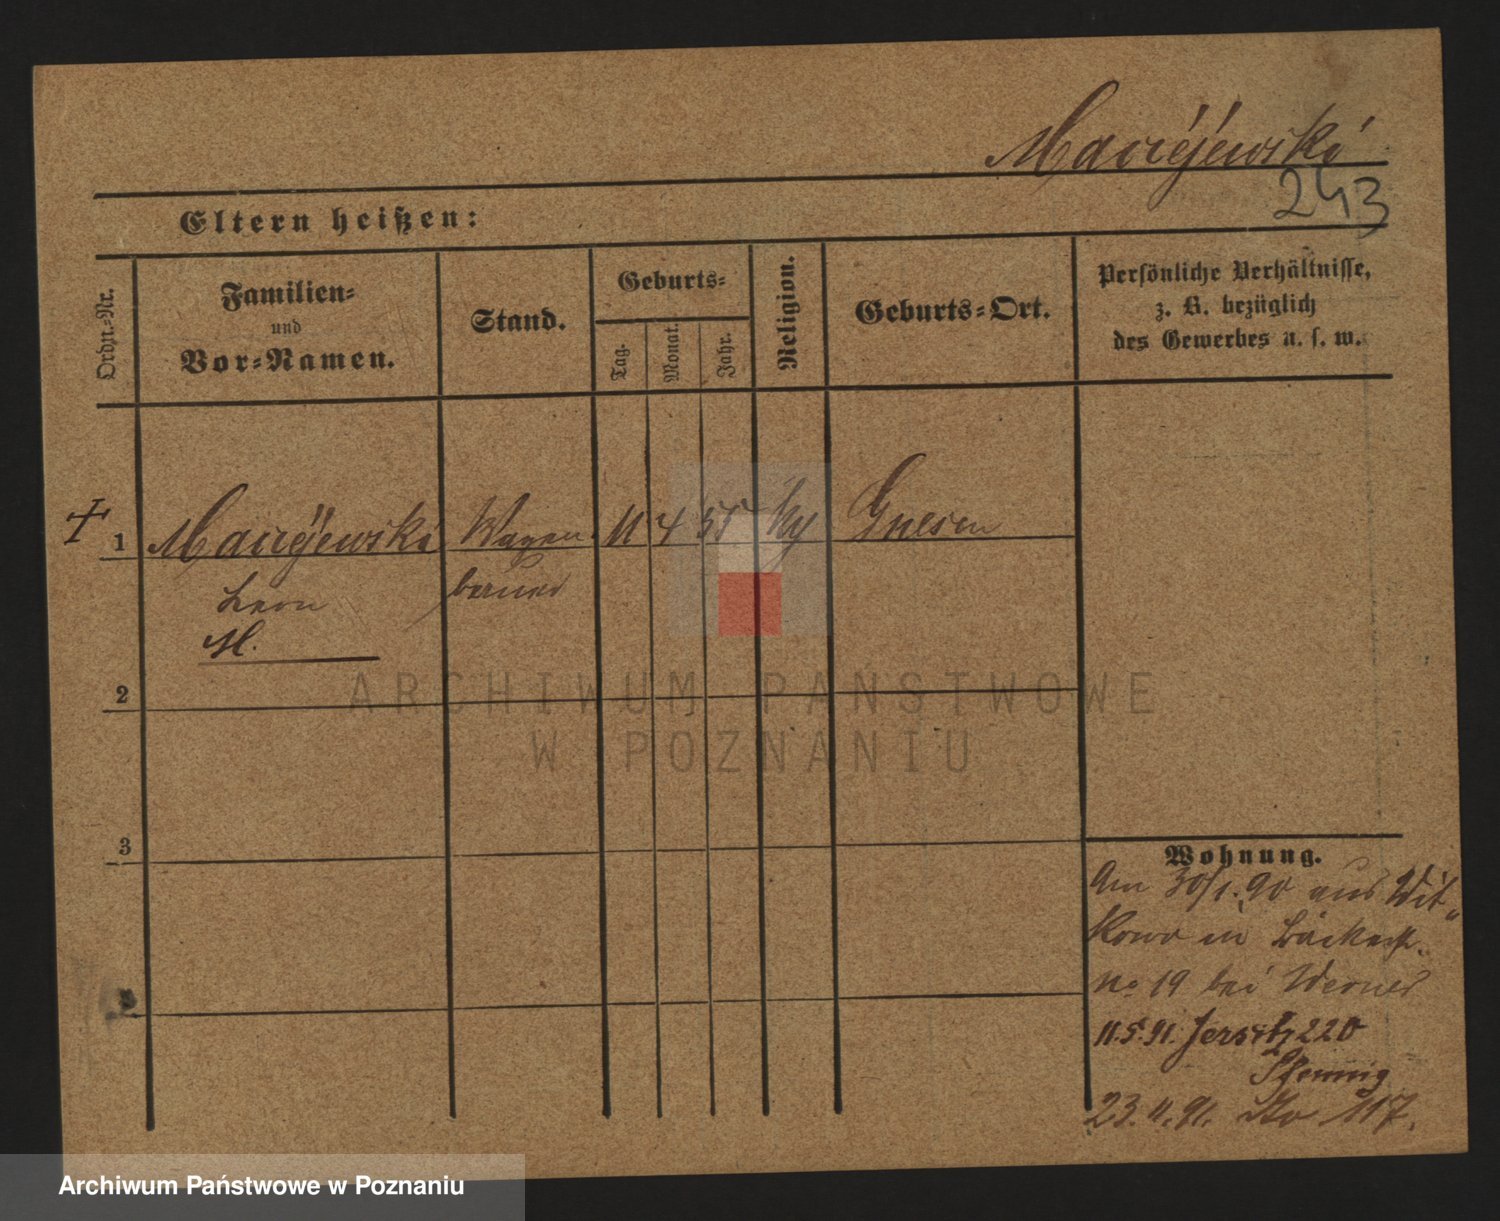 Maciéjewski
243
Eltern heißen:
Ordn.-Nr.
Familien-
und
Vor-Namen.
Stand.
Geburts-
Tag.
Monat.
Jahr.
Religion.
Geburts-Ort.
Persönliche Verhältnisse,
z. B. bezüglich
des Gewerbes u. s. w.
1 Maciéjewski Wagen 11 4 55 Gnesen
Leon bauer
M.
2
3
Wohnung.
Am 30/1. 90 aus Wit„
kowo in Bäckerst.
no 19 bei Werner
11.5.91. Jersitz 220
Pfennig
23.11.91. 117.
ARCHIWUM PAŃSTWOWE
W POZNANIU
Archiwum Państwowe w Poznaniu